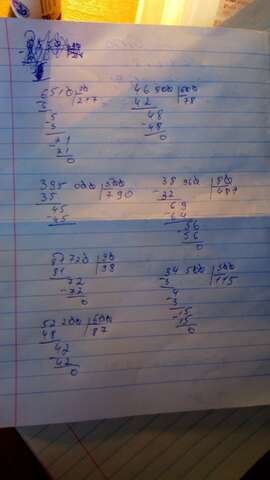 6510 |30
6 |217
5
3
-21
21
0
46 800 |600
42 |78
48
-48
0
395 000 |500
35 |790
-45
45
38 960 |80
32 |487
69
-64
-56
56
0
81720 |90
81 |98
72
-72
0
34 500 |300
3 |115
4
-3
-15
15
0
52 200 |600
48 |87
42
-42
0